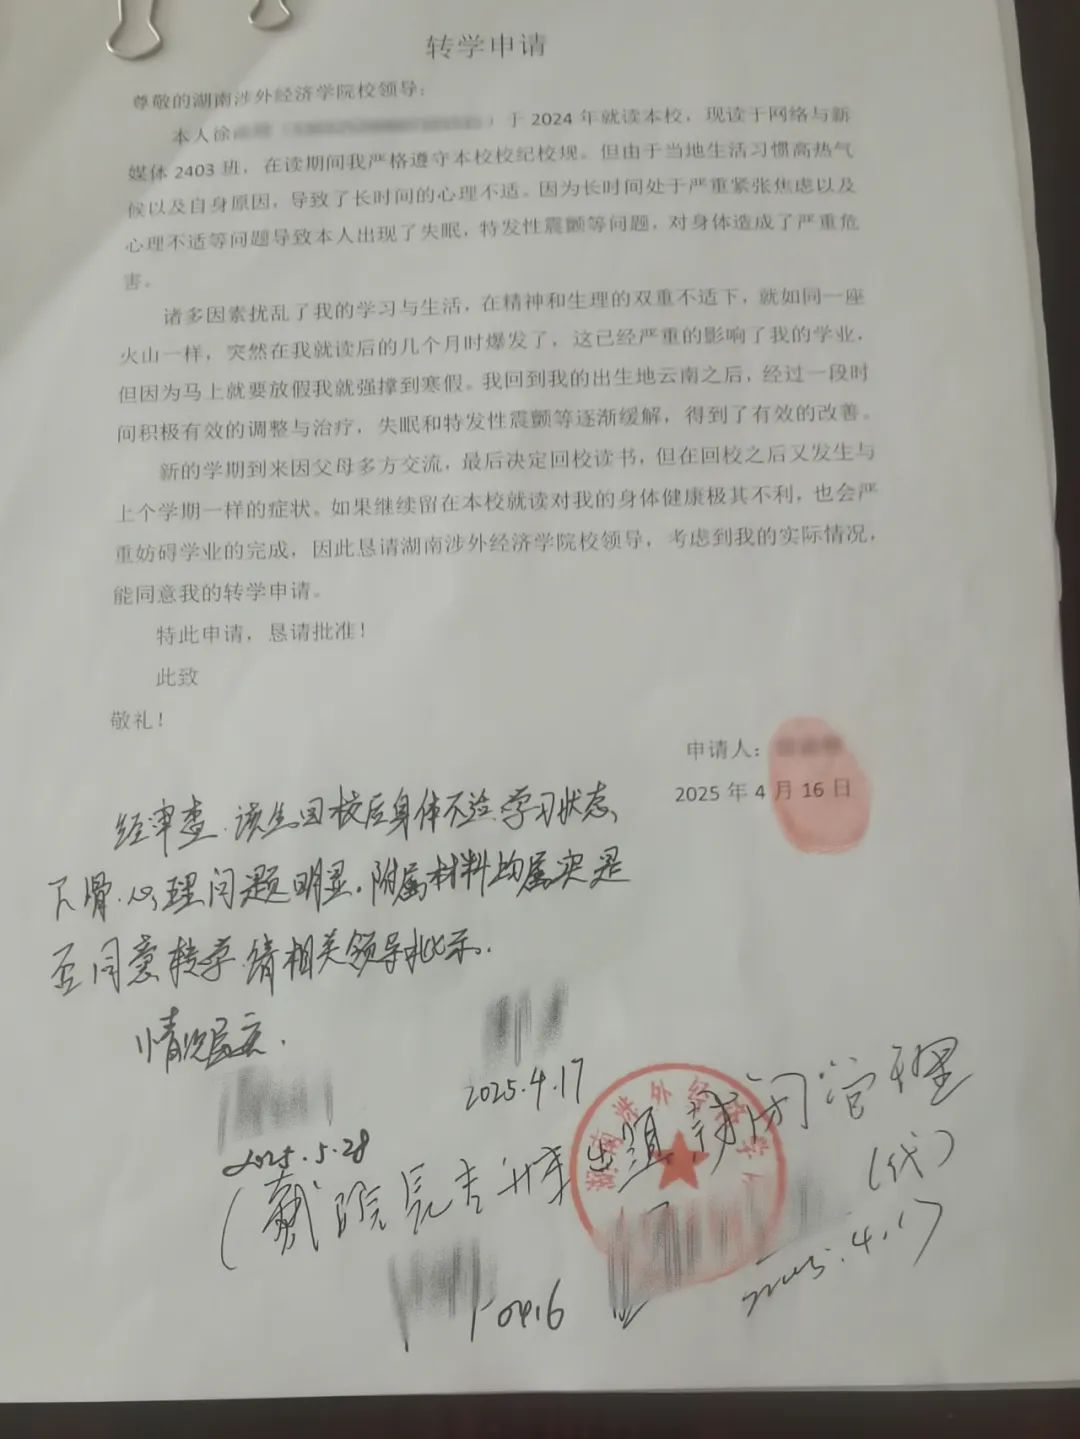 转学申请
尊敬的湖南涉外经济学院校领导：
本人徐 ）于 2024 年就读本校，现读于网络与新
媒体 2403 班，在读期间我严格遵守本校校纪校规。但由于当地生活习惯高热气
候以及自身原因，导致了长时间的心理不适。因为长时间处于严重紧张焦虑以及
心理不适等问题导致本人出现了失眠，特发性震颤等问题，对身体造成了严重危
害。
诸多因素扰乱了我的学习与生活，在精神和生理的双重不适下，就如同一座
火山一样，突然在我就读后的几个月时爆发了，这已经严重的影响了我的学业，
但因为马上就要放假我就强撑到寒假。我回到我的出生地云南之后，经过一段时
间积极有效的调整与治疗，失眠和特发性震颤等逐渐缓解，得到了有效的改善。
新的学期到来因父母多方交流，最后决定回校读书，但在回校之后又发生与
上个学期一样的症状。如果继续留在本校就读对我的身体健康极其不利，也会严
重妨碍学业的完成，因此恳请湖南涉外经济学院校领导，考虑到我的实际情况，
能同意我的转学申请。
特此申请，恳请批准！
此致
敬礼！
申请人：
2025 年 4 月 16 日
经审查，该生回校后身体不适，学习状态
下滑，心理问题明显，附属材料均属实是
否同意转学，请相关领导批示。
情况属实.
2025.4.17
2025.5.28
湖南涉外经济学
(戴院长
管理
(代)
2025.4.17